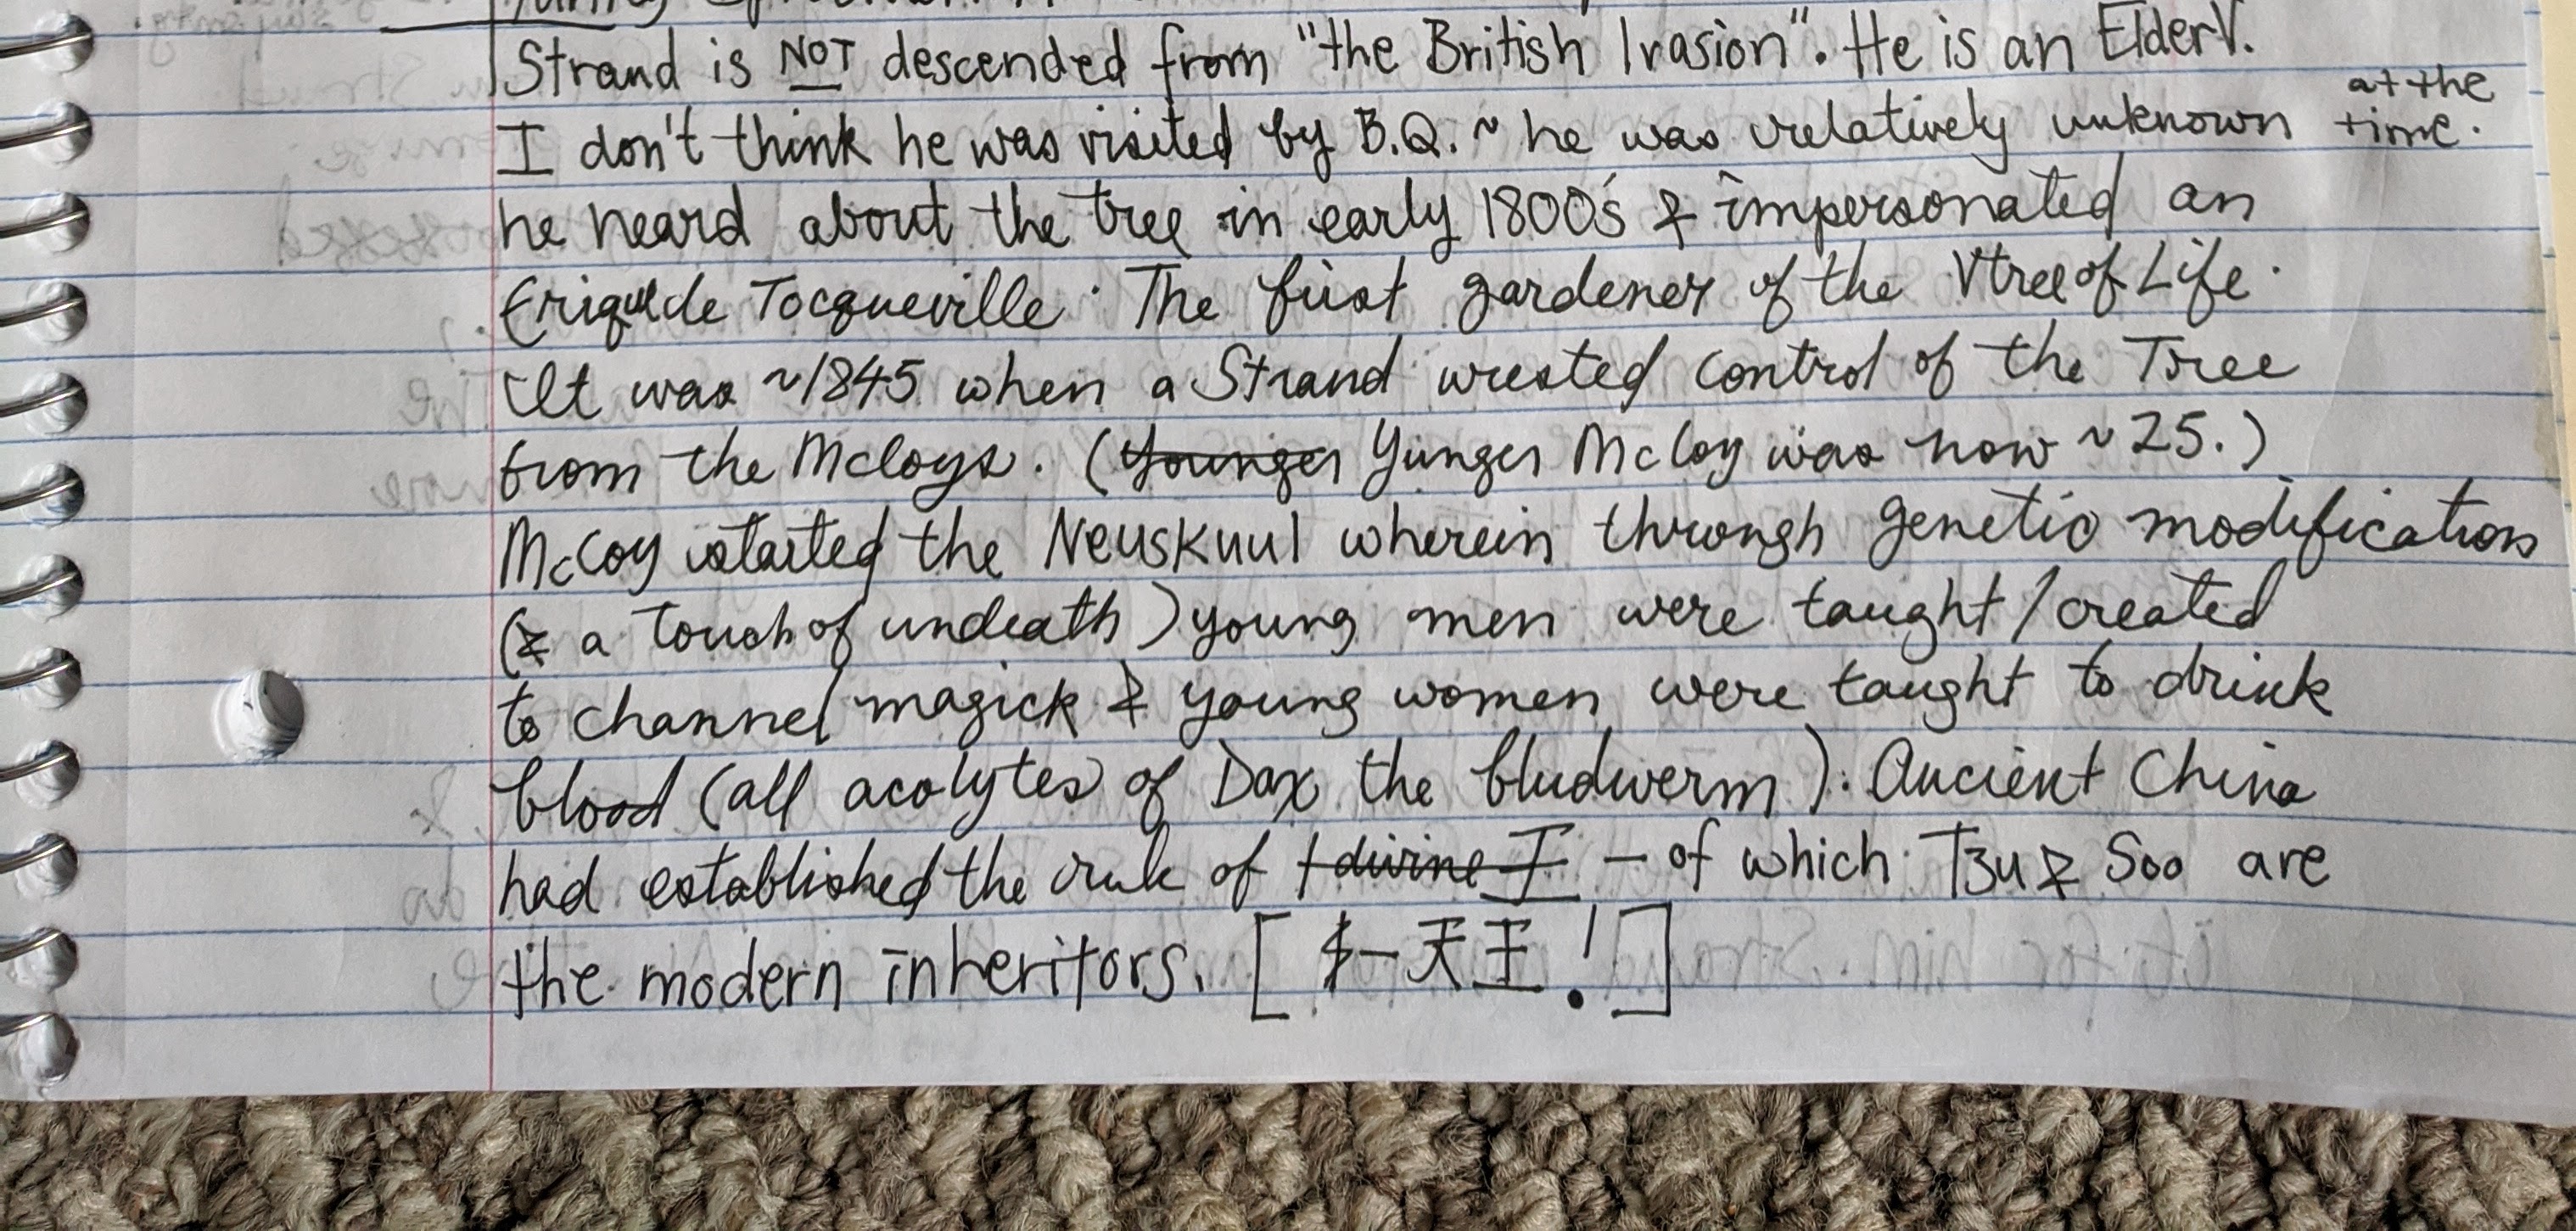 Strand is NOT descended from "the British Ivasion". He is an ElderV.
I don't think he was visited by B.Q. ~ he was relatively unknown at the time.
he heard about the tree in early 1800's & impersonated an
Erique de Tocqueville. The first gardener of the Vtree of Life.
It was ~1845 when a Strand wrested control of the Tree
from the McCoys. (Younger Yunger McCoy was now ~25.)
McCoy started the Neuskuul wherein through genetic modification
(& a touch of undeath) young men were taught/created
to channel magick & young women were taught to drink
blood (all acolytes of Dax the bludwerm). Ancient China
had established the rule of 1 divine I — of which Tzu & Soo are
the modern inheritors. [ 一天王! ]